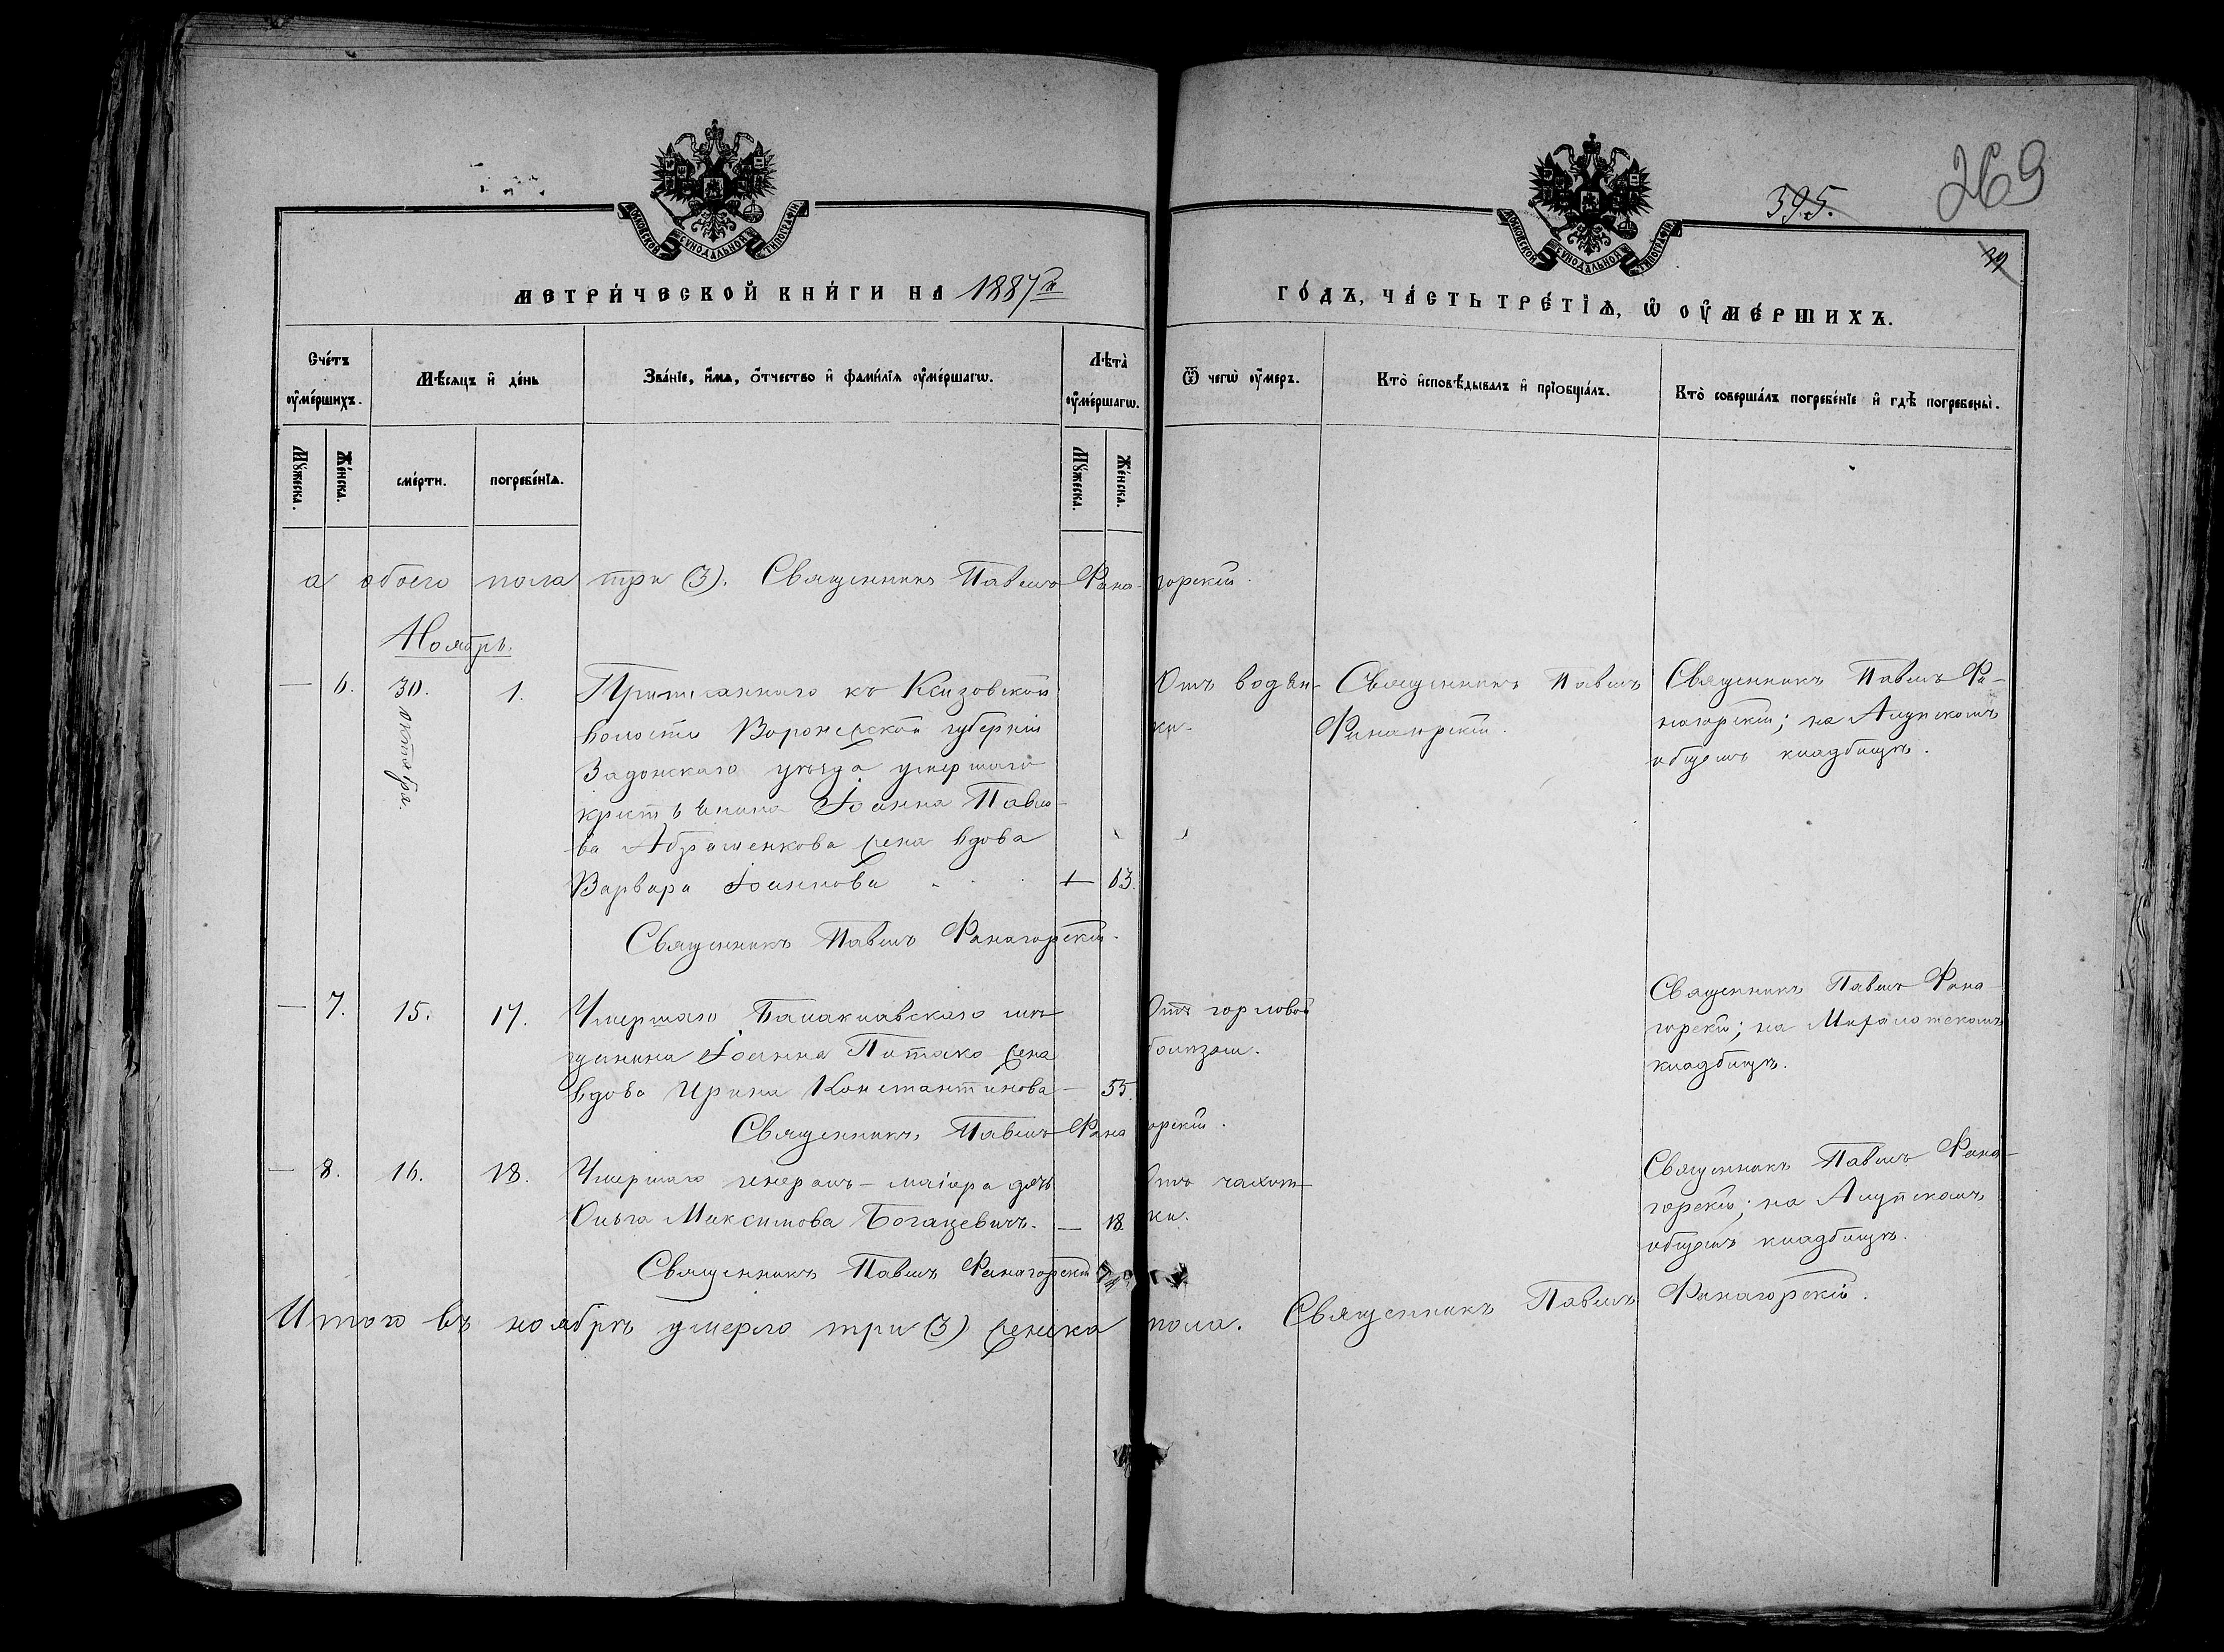 МОСКОВСКОЙ СѴНОДАЛЬНОЙ ТИПОГРАФІИ
МОСКОВСКОЙ СѴНОДАЛЬНОЙ ТИПОГРАФІИ
395.
269
МЕТРИ́ЧЕСКОЙ КНИ́ГИ НА 1887 г.
ГО́ДЪ, ЧА́СТЬ ТРЕ́ТІѦ, Ѡ ОУ҆МЕ́РШИХЪ.
Сче́тъ оу҆ме́ршихъ.
Мѣ́сяцъ и҆ де́нь
Зва́нїе, и҆́мѧ, ѻ҆́тчество и҆ фами́лїѧ оу҆ме́ршагѡ.
Лѣ́та оу҆ме́ршагѡ.
Ѿ чегѡ̀ оу҆́меръ.
Кто̀ и҆сповѣ́дывалъ и҆ прїобща́лъ.
Кто̀ соверша́лъ погребе́нїе и҆ гдѣ̀ погребены̀.
Мꙋ́жеска.
Же́нска.
сме́рти.
погребе́нїѧ.
Мꙋ́жеска.
Же́нска.
а обоего пола три (3). Священникъ Павелъ Фанагорскій.
Ноябрь.
— 6. 30. октября. 1.
Приписаннаго къ Ксизовской
волости Воронежской губерніи
Задонскаго уѣзда умершаго
крестьянина Іоанна Павло-
ва Абрашенкова жена вдова
Варвара Іоаннова — 63.
Отъ водян-
ки.
Священникъ Павелъ
Фанагорскій.
Священникъ Павелъ Фа-
нагорскій; на Алупскомъ
общемъ кладбищѣ.
Священникъ Павелъ Фанагорскій.
— 7. 15. 17.
Умершаго Балаклавскаго мѣ-
щанина Іоанна Потако жена
вдова Ирина Константинова — 55.
Отъ горловой
болѣзни.
Священникъ Павелъ Фана-
горскій; на
кладбищѣ.
Священникъ Павелъ Фанагорскій.
— 8. 16. 18.
Умершаго генералъ-маіора дочь
Ольга Максимова Богацевичъ. — 18.
Отъ чахот-
ки.
Священникъ Павелъ Фана-
горскій; на Алупскомъ
общемъ кладбищѣ.
Священникъ Павелъ Фанагорскій
Итого въ ноябрѣ умерло три (3) женска пола. Священникъ Павелъ Фанагорскій.